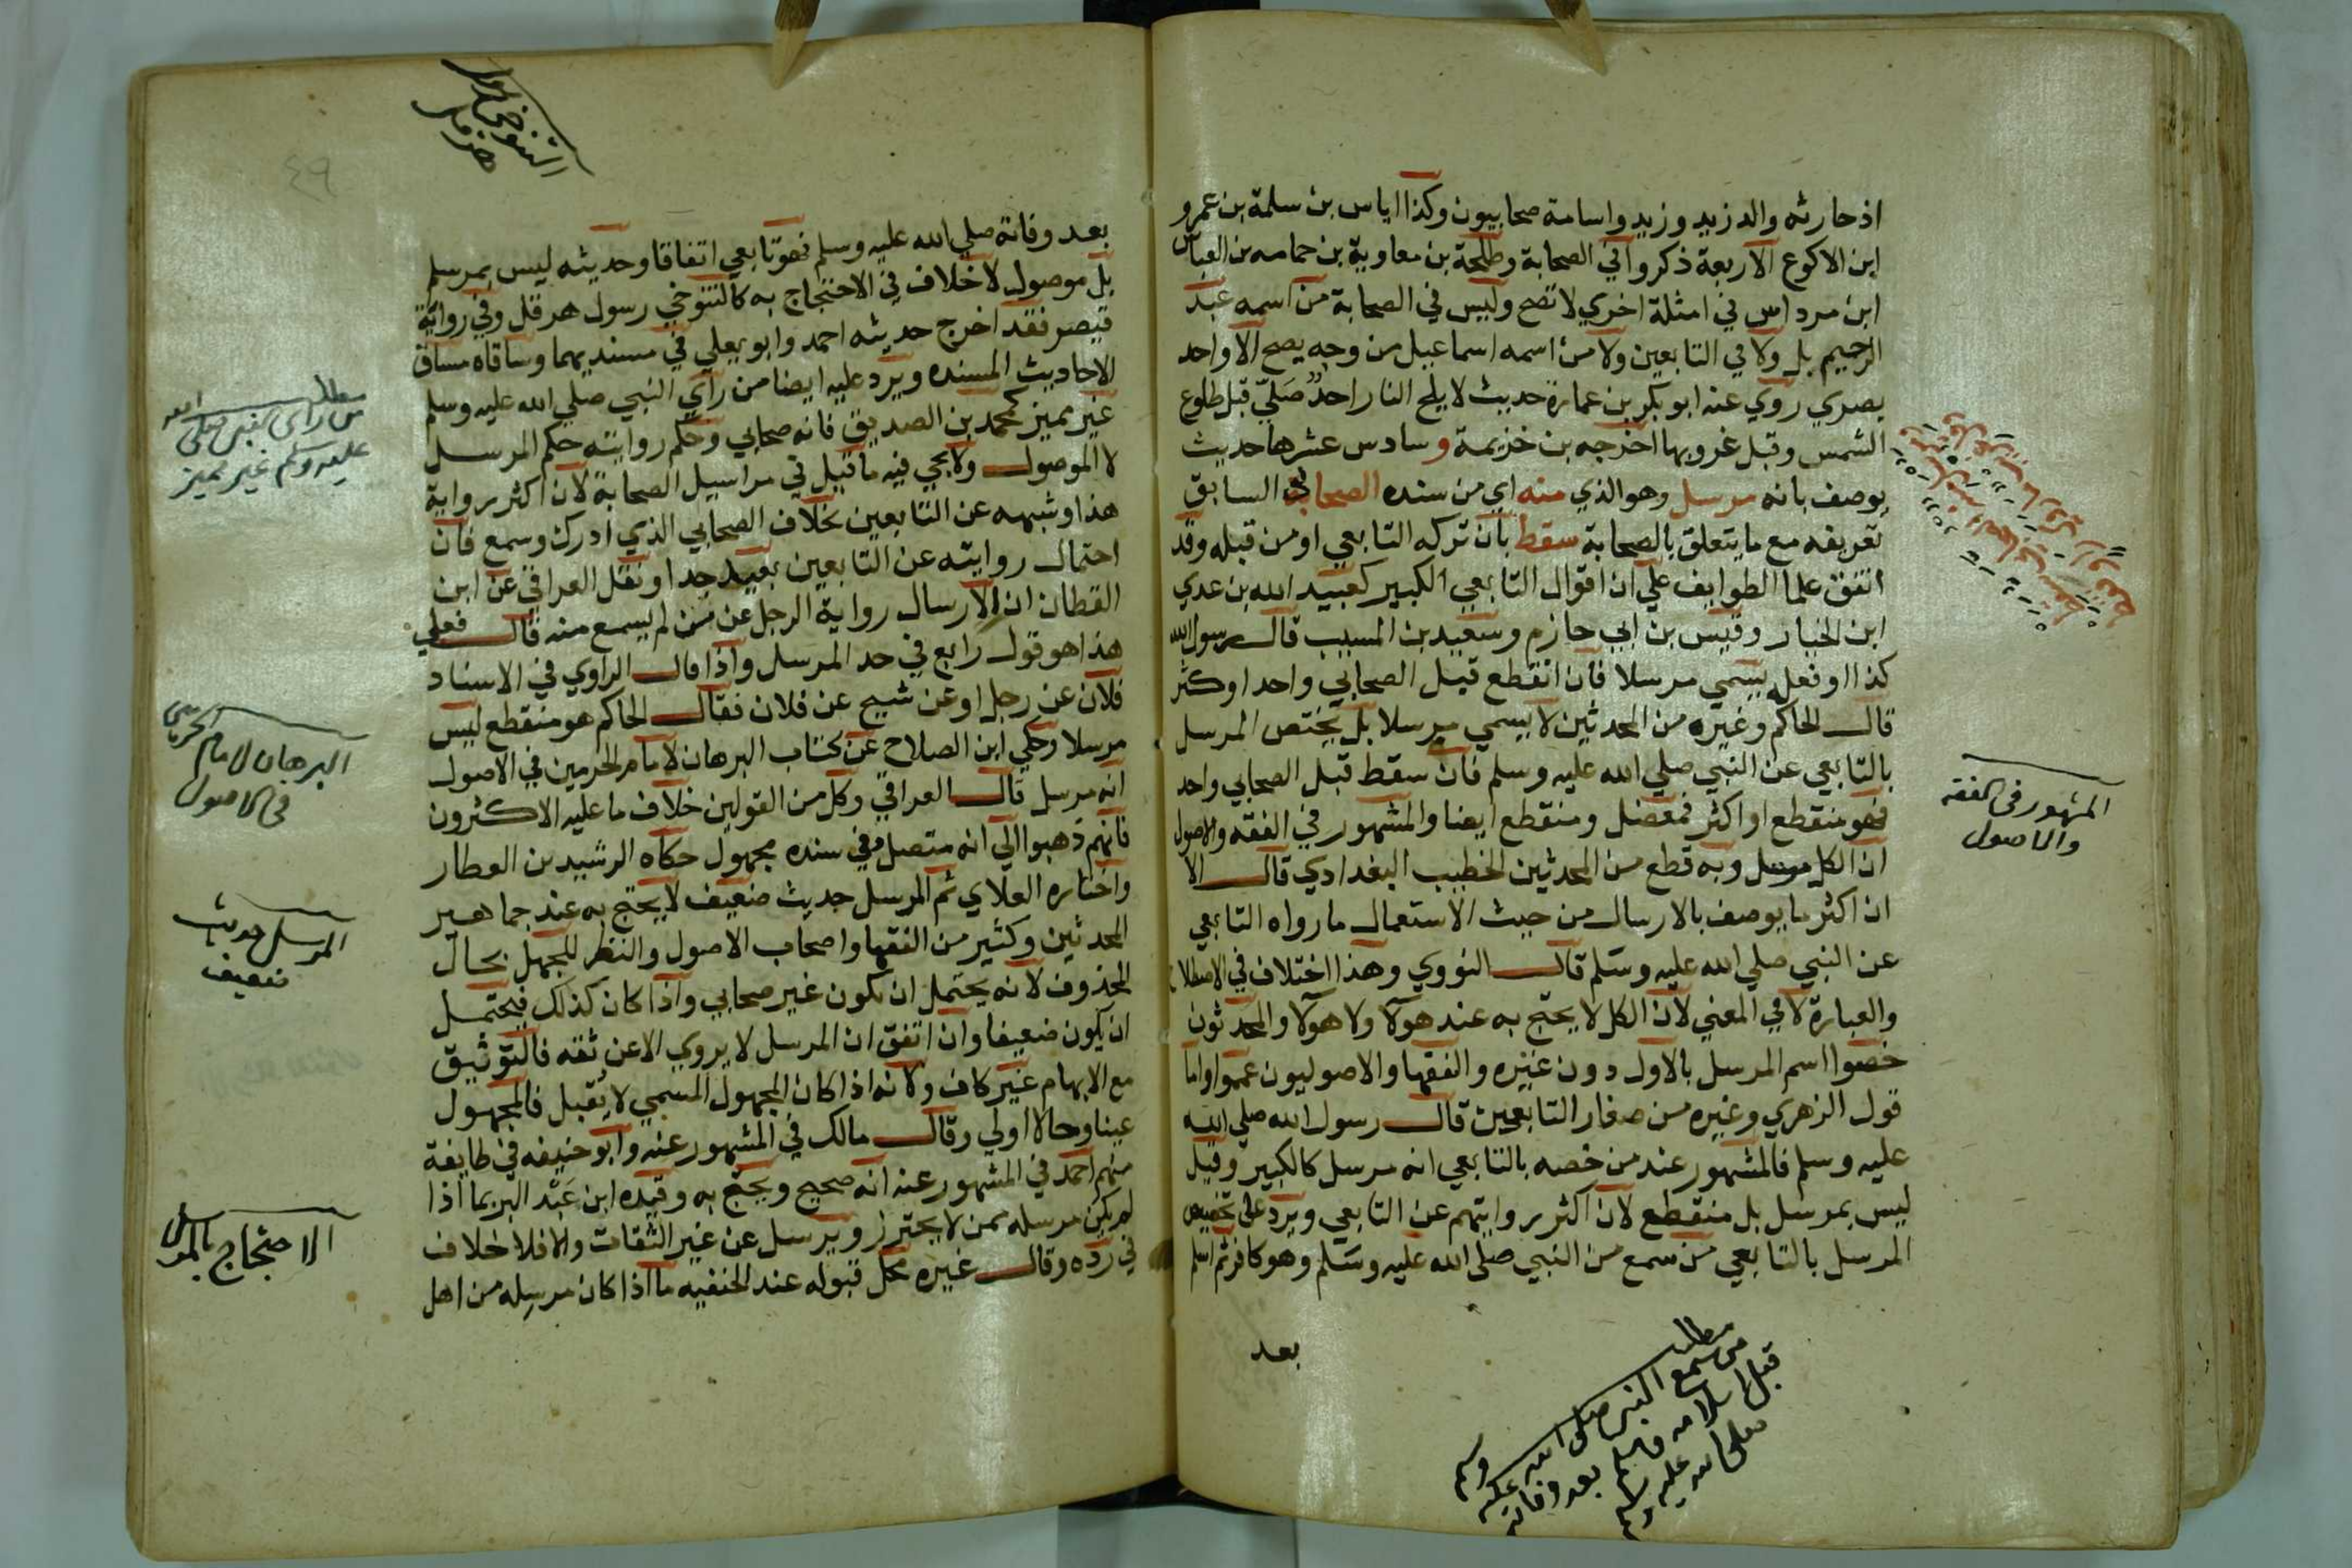 اذ حارثه والد زيد وزيد واسامة صحابيون وكذا اياس بن سلمة بن عمرو
ابن الاكوع الاربعة ذكروا في الصحابة وطلحة بن معاوية بن جاهمه بن العباس
ابن مرداس في امثلة اخري لا تصح وليس في الصحابة من اسمه عبد
الرحيم بل ولا في التابعين ولا من اسمه اسماعيل من وجه يصح الا واحد
بصري روي عنه ابو بكر بن عمارة حديث لا يلج النار احد صلي قبل طلوع
الشمس وقبل غروبها اخرجه بن خزيمة وسادس عشرها حديث
يوصف بانه مرسل وهو الذي منه اي من سنده الصحابي السابق
تعريفه مع ما يتعلق بالصحابة سقط بان تركه التابعي او من قبله وقد
اتفق علما الطوايف علي ان اقوال التابعي الكبير كعبيد الله بن عدي
ابن الخيار وقيس بن ابي حازم وسعيد بن المسيب قال رسول الله
كذا او فعله يسمي مرسلا فان انقطع قبل الصحابي واحد او كثر
قال الحاكم وغيره من المحدثين لا يسمي مرسلا بل يختص المرسل
بالتابعي عن النبي صلي الله عليه وسلم فان سقط قبل الصحابي واحد
فهو منقطع او اكثر فمعضل ومنقطع ايضا والمشهور في الفقه والاصول
ان الكل مرسل وبه قطع من المحدثين الخطيب البغدادي قال الا
ان اكثر ما يوصف بالارسال من حيث الاستعمال ما رواه التابعي
عن النبي صلي الله عليه وسلم قال النووي وهذا اختلاف في الاصطلاح
والعبارة لا في المعني لان الكل لا يحتج به عند هولآ ولا هولآ والمحدثون
خصوا اسم المرسل بالاول دون غيره والفقها والاصوليون عمموا واما
قول الزهري وغيره من صغار التابعين قال رسول الله صلي الله
عليه وسلم فالمشهور عند من خصه بالتابعي انه مرسل كالكبير وقيل
ليس بمرسل بل منقطع لان اكثر روايتهم عن التابعي ويرد علي تخصيص
المرسل بالتابعي من سمع من النبي صلي الله عليه وسلم وهو كافر ثم اسلم
بعد
المشهور في الفقه
والاصول
مطلب
من سمع النبي صلى الله عليه وسلم
قبل اسلامه فاسلم بعد وفاته
صلى الله عليه وسلم
التنوخي رسول
هرقل
٤٩
بعد وفاته صلي الله عليه وسلم فهو تابعي اتفاقا وحديثه ليس بمرسل
بل موصول لا خلاف في الاحتجاج به كالتنوخي رسول هرقل وفي رواية
قيصر فقد اخرج حديثه احمد وابو يعلي في مسنديهما وساقاه مساق
الاحاديث المسنده ويرد عليه ايضا من رأي النبي صلي الله عليه وسلم
غير مميز كمحمد بن الصديق فانه صحابي وحكم روايته حكم المرسل
لا الموصول ولا يجي فيه ما قيل في مراسيل الصحابة لان اكثر رواية
هذا وشبهه عن التابعين بخلاف الصحابي الذي ادرك وسمع فان
احتمال روايته عن التابعين بعيد جدا ونقل العراقي عن ابن
القطان ان الارسال رواية الرجل عن من لم يسمع منه قال فعلي
هذا هو قول رابع في حد المرسل واذا قال الراوي في الاسناد
فلان عن رجل او عن شيخ عن فلان فقال الحاكم هو منقطع ليس
مرسلا وحكي ابن الصلاح عن كتاب البرهان لامام الحرمين في الاصول
انه مرسل قال العراقي وكل من القولين خلاف ما عليه الاكثرون
فانهم ذهبوا الي انه متصل وفي سنده مجهول حكاه الرشيد بن العطار
واختاره العلاي ثم المرسل حديث ضعيف لا يحتج به عند جماهير
المحدثين وكثير من الفقها واصحاب الاصول والنظر للجهل بحال
المحذوف لانه يحتمل ان يكون غير صحابي واذا كان كذلك فيحتمل
ان يكون ضعيفا وان اتفق ان المرسل لا يروي الا عن ثقه فالتوثيق
مع الابهام غير كاف ولانه اذا كان المجهول المسمي لا يقبل فالمجهول
عينا وحالا اولي وقال مالك في المشهور عنه وابو حنيفه في طايفة
منهم احمد في المشهور عنه انه صحيح ويحتج به وقيده ابن عبد البر بما اذا
لم يكن مرسله ممن لا يحترز ويرسل عن غير الثقات والا فلا خلاف
في رده وقال غيره محل قبوله عند الحنفيه ما اذا كان مرسله من اهل
مطلب
من رأى النبي صلى الله
عليه وسلم غير مميز
البرهان لامام الحرمين
في الاصول
المرسل حديث
ضعيف
الاحتجاج بالمرسل